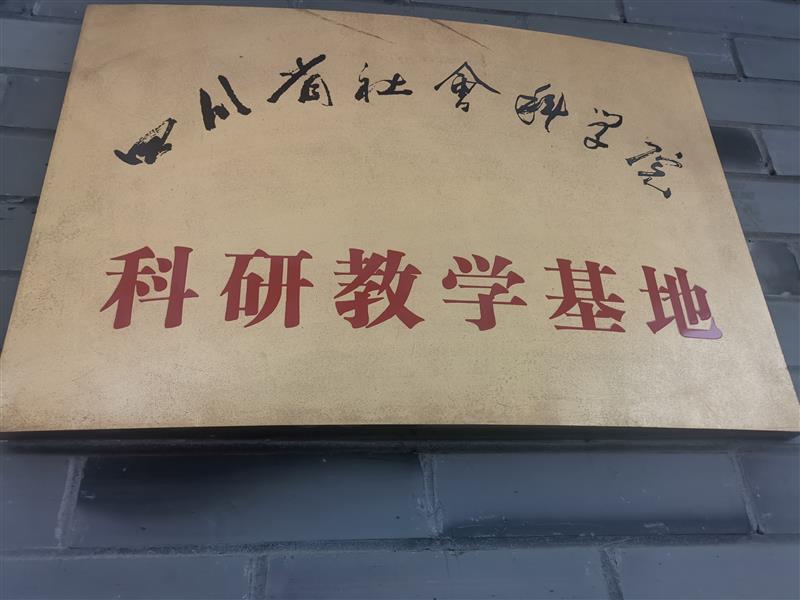 四川省社會科学院
科研教学基地